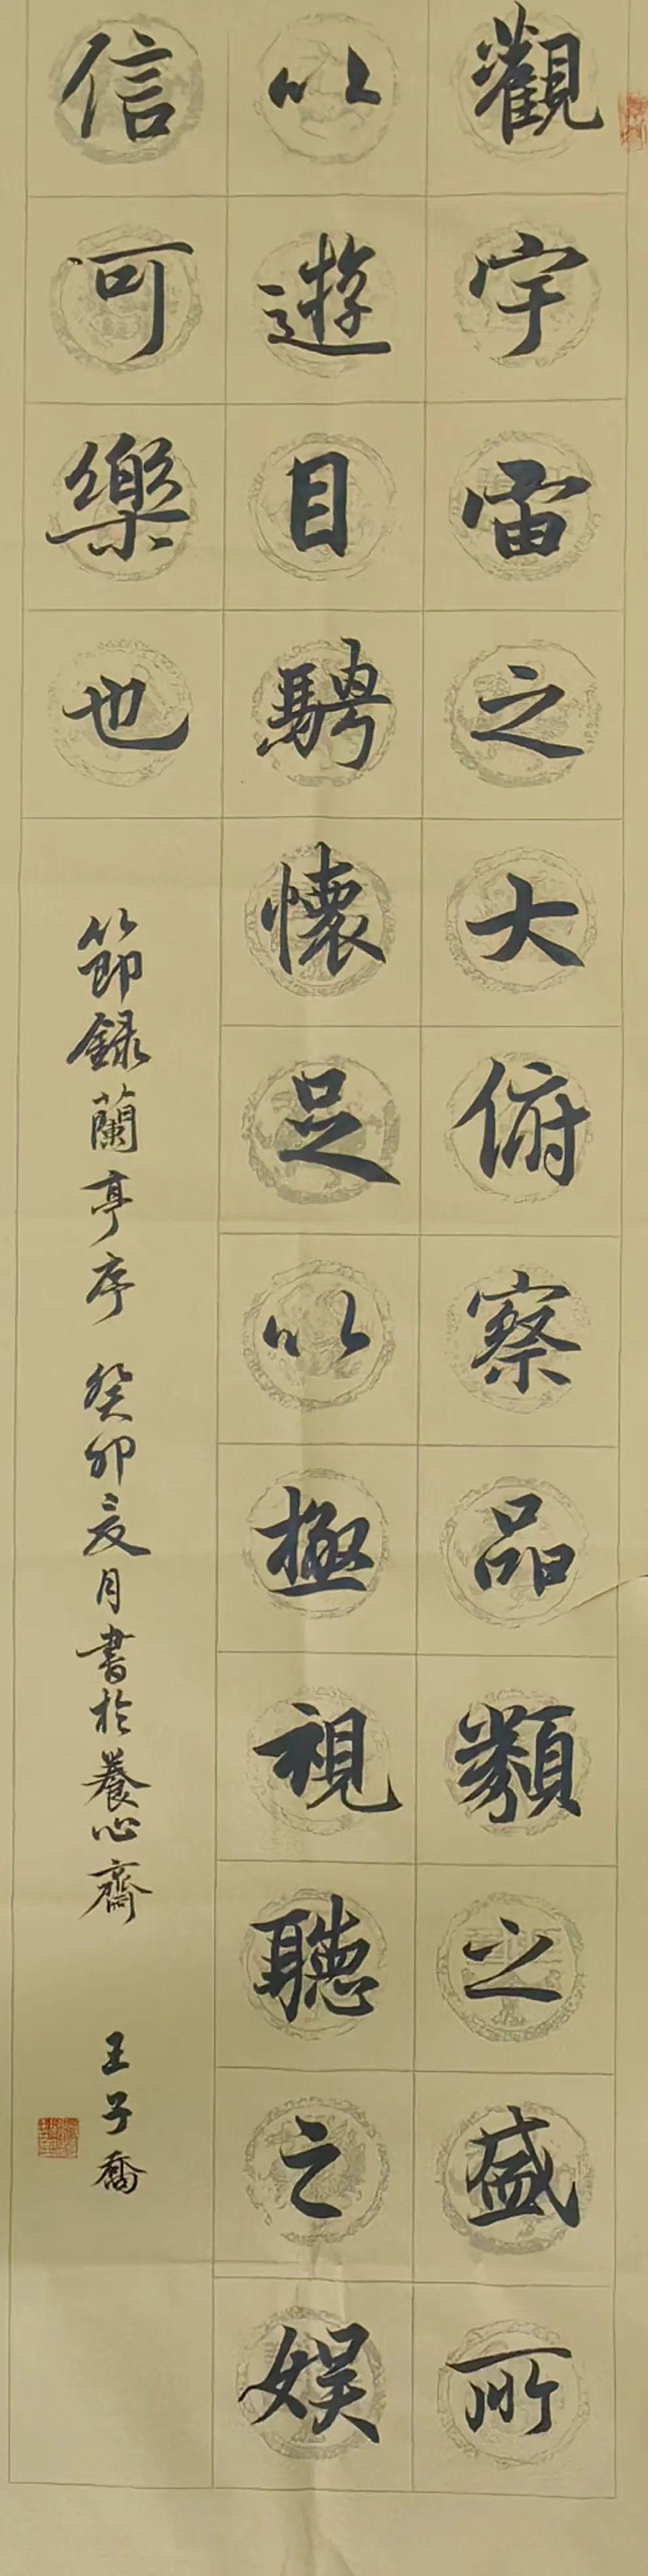 觀宇宙之大俯察品類之盛所
以遊目騁懷足以極視聽之娱
信可樂也
節録蘭亭序 癸卯亥月書於養心齋 王子喬